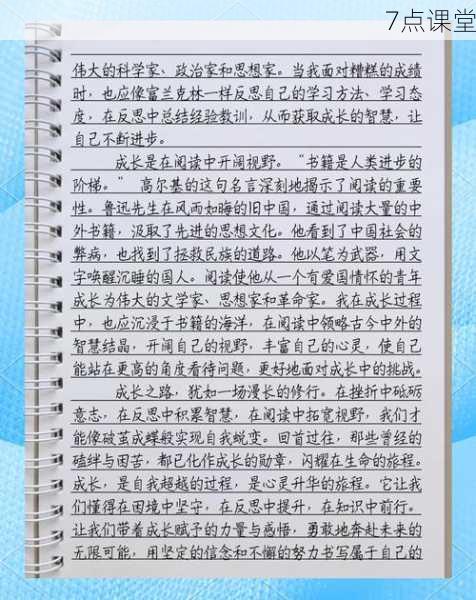 7点课堂
伟大的科学家、政治家和思想家。当我面对糟糕的成绩
时，也应像富兰克林一样反思自己的学习方法、学习态
度，在反思中总结经验教训，从而获取成长的智慧，让
自己不断进步。
成长是在阅读中开阔视野。“书籍是人类进步的
阶梯。”高尔基的这句名言深刻地揭示了阅读的重要
性。鲁迅先生在风雨如晦的旧中国，通过阅读大量的中
外书籍，汲取了先进的思想文化。他看到了中国社会的
弊病，也找到了拯救民族的道路。他以笔为武器，用文
字唤醒沉睡的国人。阅读使他从一个有爱国情怀的青年
成长为伟大的文学家、思想家和革命家。我在成长过程
中，也应沉浸于书籍的海洋，在阅读中领略古今中外的
智慧结晶，开阔自己的视野，丰富自己的心灵，使自己
能站在更高的角度看待问题，更好地面对成长中的挑战。
成长之路，犹如一场漫长的修行。在挫折中砥砺
意志，在反思中积累智慧，在阅读中拓宽视野，我们才
能像破茧成蝶般实现自我蜕变。回首过往，那些曾经的
磕绊与困苦，都已化作成长的勋章，闪耀在生命的旅程。
成长，是自我超越的过程，是心灵升华的旅程。它让我
们懂得在困境中坚守，在反思中提升，在知识中前行。
让我们带着成长赋予的力量与感悟，勇敢地奔赴未来的
无限可能，用坚定的信念和不懈的努力书写属于自己的